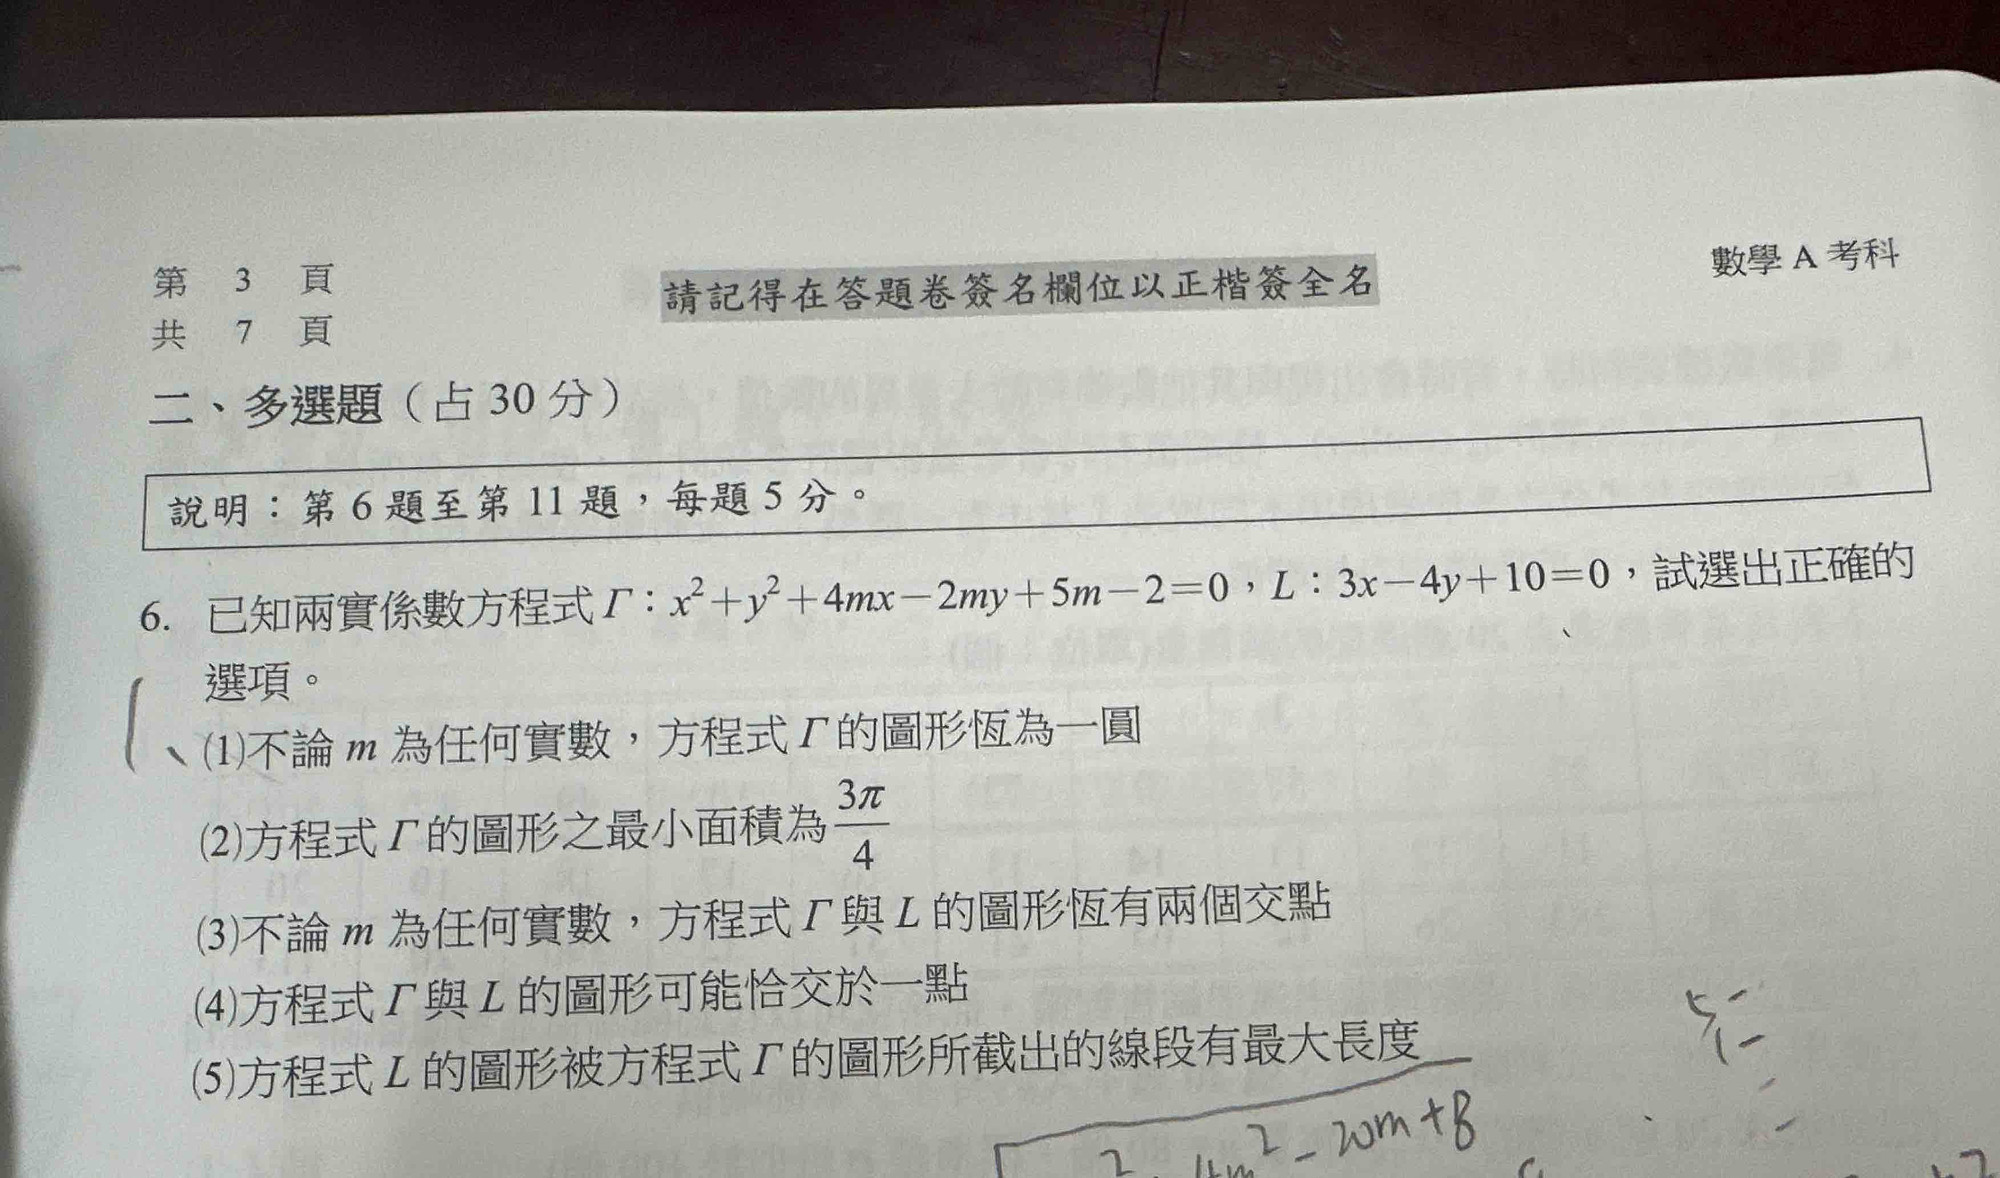 第 3 頁
共 7 頁
請記得在答題卷簽名欄位以正楷簽全名
數學 A 考科
二、多選題（占 30 分）
說明：第 6 題至第 11 題，每題 5 分。
6. 已知兩實係數方程式 Γ：x²+y²+4mx−2my+5m−2=0，L：3x−4y+10=0，試選出正確的
選項。
(1)不論 m 為任何實數，方程式 Γ 的圖形恆為一圓
(2)方程式 Γ 的圖形之最小面積為 3π/4
(3)不論 m 為任何實數，方程式 Γ 與 L 的圖形恆有兩個交點
(4)方程式 Γ 與 L 的圖形可能恰交於一點
(5)方程式 L 的圖形被方程式 Γ 的圖形所截出的線段有最大長度
−20m+8